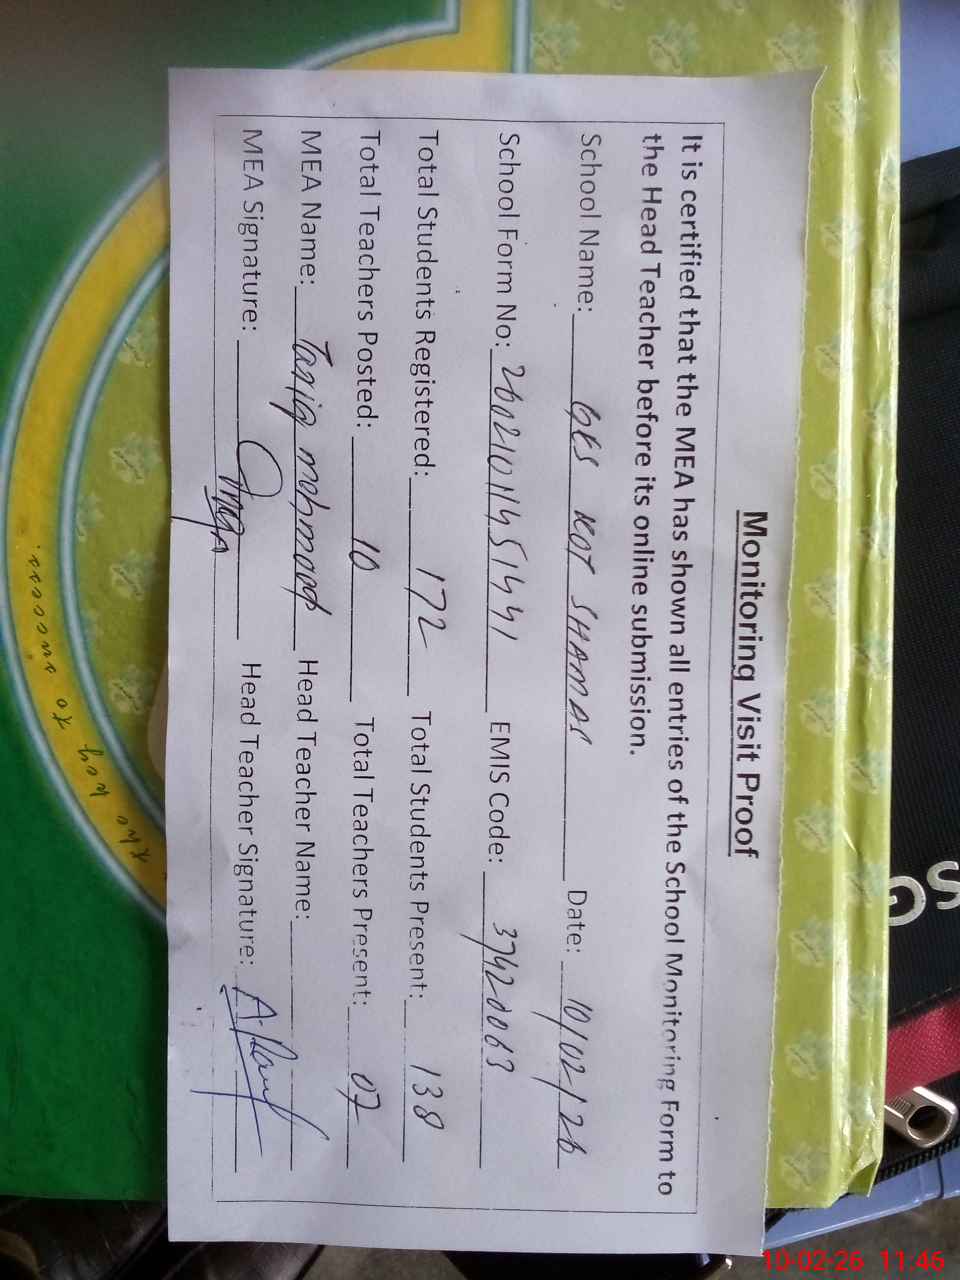 Monitoring Visit Proof
It is certified that the MEA has shown all entries of the School Monitoring Form to
the Head Teacher before its online submission.
School Name: GES KOT SHAMAS Date: 10/02/26
School Form No: EMIS Code: 37420063
Total Students Registered: 172 Total Students Present: 138
Total Teachers Posted: 10 Total Teachers Present: 07
MEA Name: Tariq mehmood Head Teacher Name:
MEA Signature: Head Teacher Signature:
SG
10-02-26 11:46